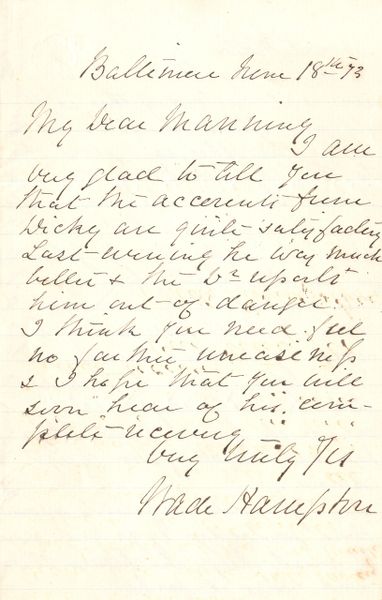 Baltimore Nov 18th 73
My Dear Manning
I am
very glad to tell you
that the accounts from
Dicky are quite satisfactory
Last evening he was much
better & the Dr reports
him out of danger.
I think you need feel
no farther uneasiness
& I hope that you will
soon hear of his com-
plete recovery
Very truly Yrs
Wade Hampton